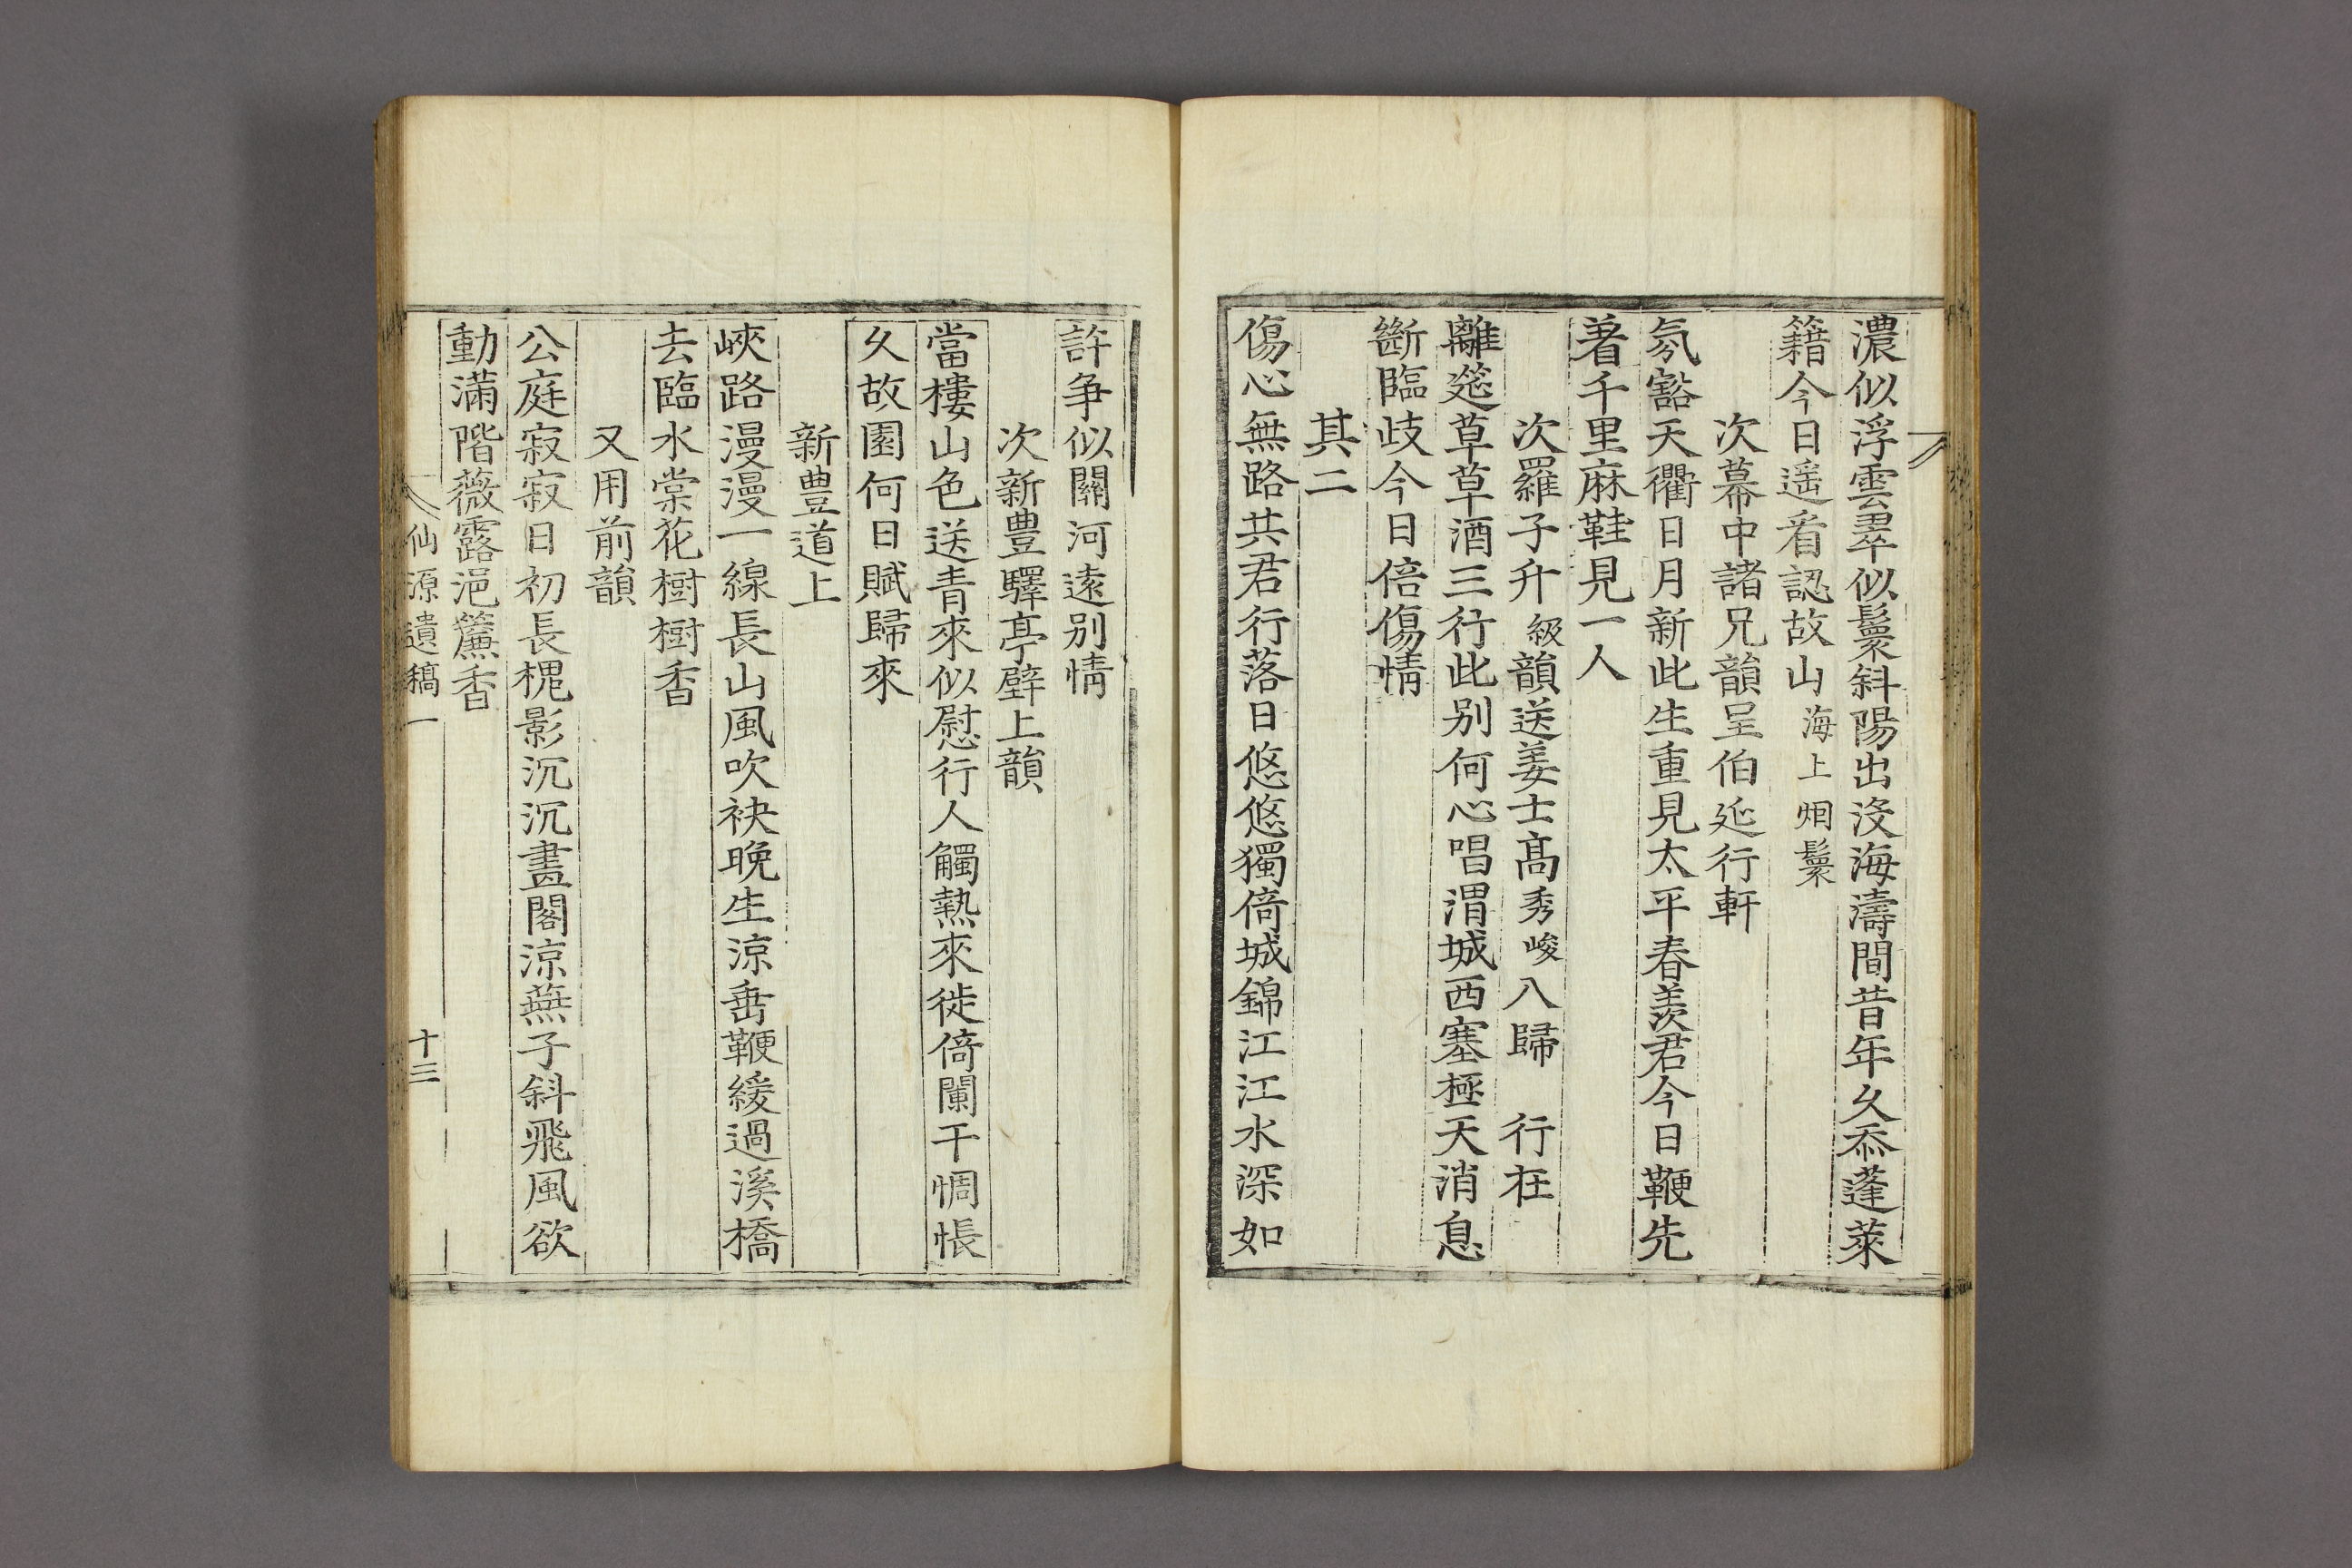 濃似浮雲翠似鬟斜陽出沒海濤間昔年久忝蓬萊
籍今日遥看認故山海上烟鬟
次幕中諸兄韻呈伯延行軒
氛豁天衢日月新此生重見太平春羡君今日鞭先
著千里麻鞋見一人
次羅子升級韻送姜士高秀峻八歸 行在
離筵草草酒三行此别何心唱渭城西塞極天消息
斷臨歧今日倍傷情
其二
傷心無路共君行落日悠悠獨倚城錦江江水深如
許争似關河遠别情
次新豊驛亭壁上韻
當樓山色送青來似慰行人觸熱來徙倚闌干惆悵
久故園何日賦歸來
新豊道上
峽路漫漫一線長山風吹袂晚生涼垂鞭緩過溪橋
去臨水棠花樹樹香
又用前韻
公庭寂寂日初長槐影沉沉畫閣涼燕子斜飛風欲
動滿階薇露浥簾香
仙源遺稿一
十三